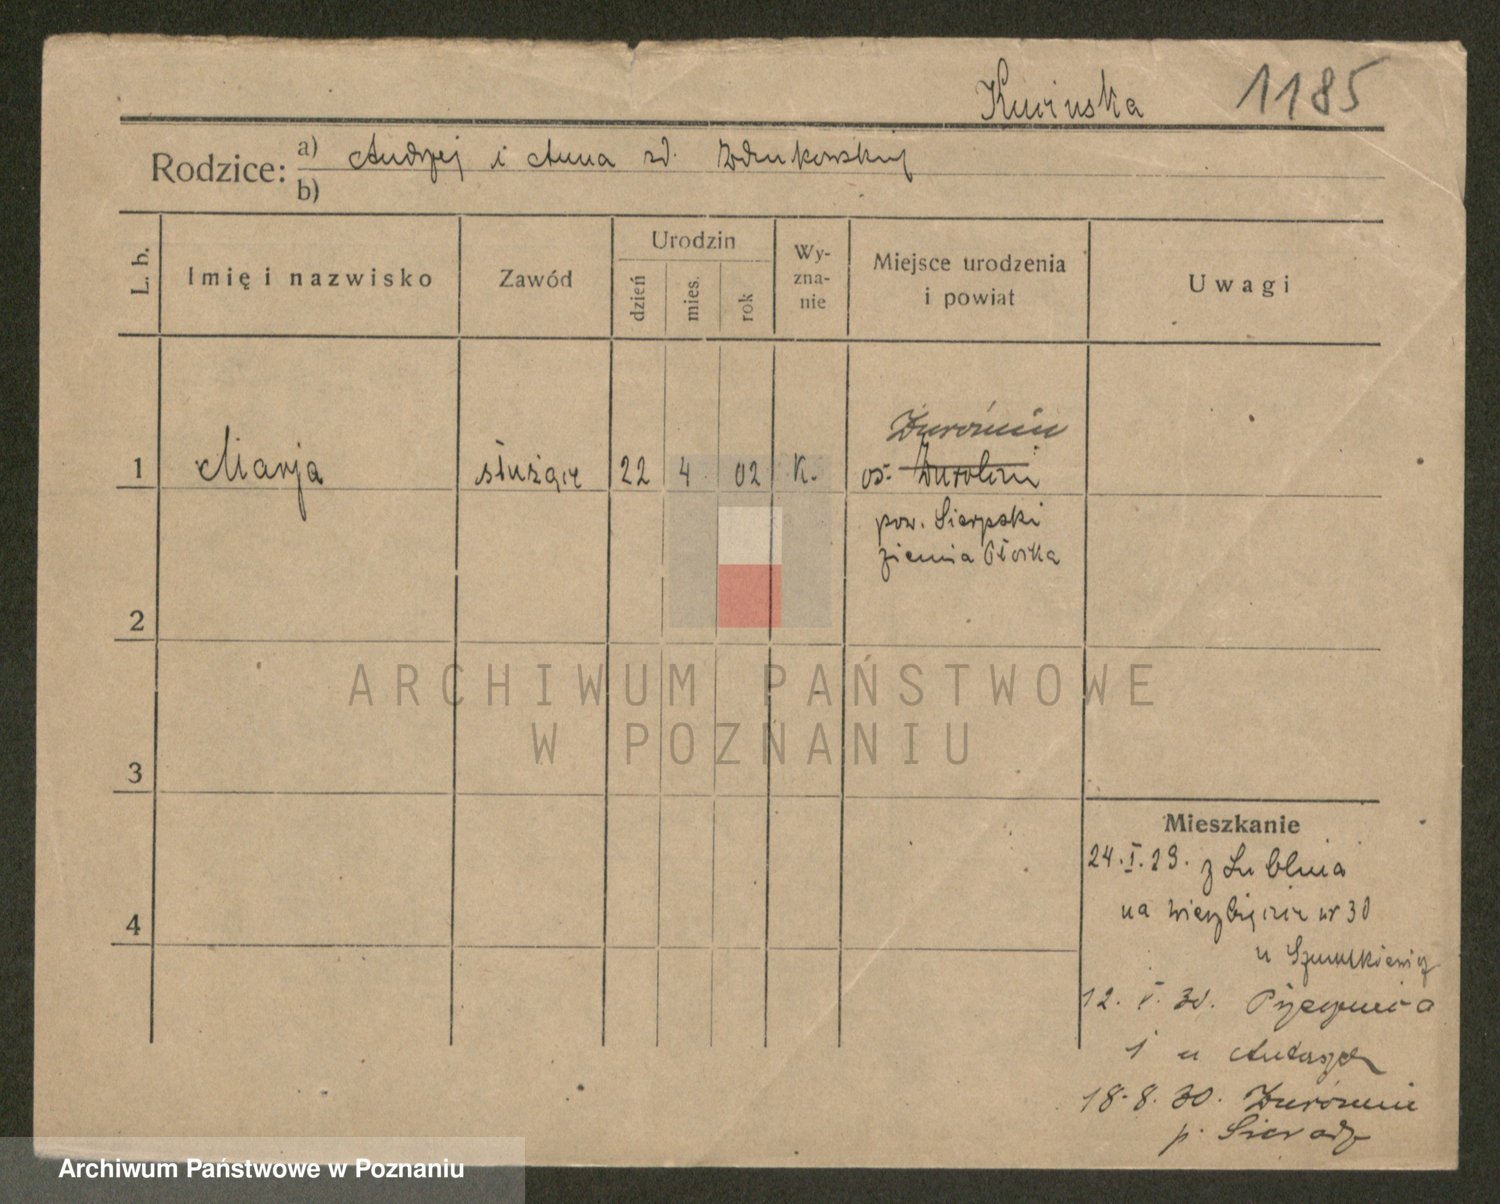 1185
Rodzice: a) Andrzej i Anna zd.
b)
L. b. Imię i nazwisko Zawód Urodzin dzień mies. rok Wy-zna-nie Miejsce urodzenia i powiat Uwagi
Żuromin
1 Marja służąca 22 4 02 K. os.
pow. Sierpski
ziemia Płocka
2
ARCHIWUM PAŃSTWOWE
W POZNANIU
3
Mieszkanie
24.I.29. z Lublina
na nr 30
4
u
12. V. 30.
1 u
18.8.30. Żuromin
p.
Archiwum Państwowe w Poznaniu